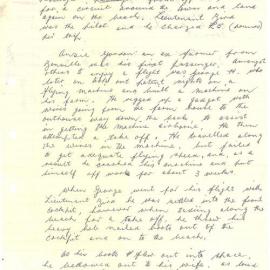 for a circuit around the town and land
again on the beach. Lieutenant Bird
was the pilot and he charged £5.
per trip.
Ossie Gordon an ex farmer from
was his first passenger. Amongst
others to enjoy a flight was George W. who
later on had
flying machine and built a machine on
his farm. He rigged up a gadget with
wires going from the farm house to the
outhouse way down the back, to assist
in getting the machine airborne. He then
attempted a take off. He travelled along
the wires in the machine, but failed
to get adequate flying speed and as a
result he crashed his machine and put
himself off work for about 3 weeks.
When George went for his flight with
Lieutenant Bird he was settled into the front
cockpit, however when taxiing along the
beach for a take off, he threw his
heavy hob nailed boots out of the
cockpit and on to the beach.
As his boots flew out into space,
he bellowed out to his wife, as loud